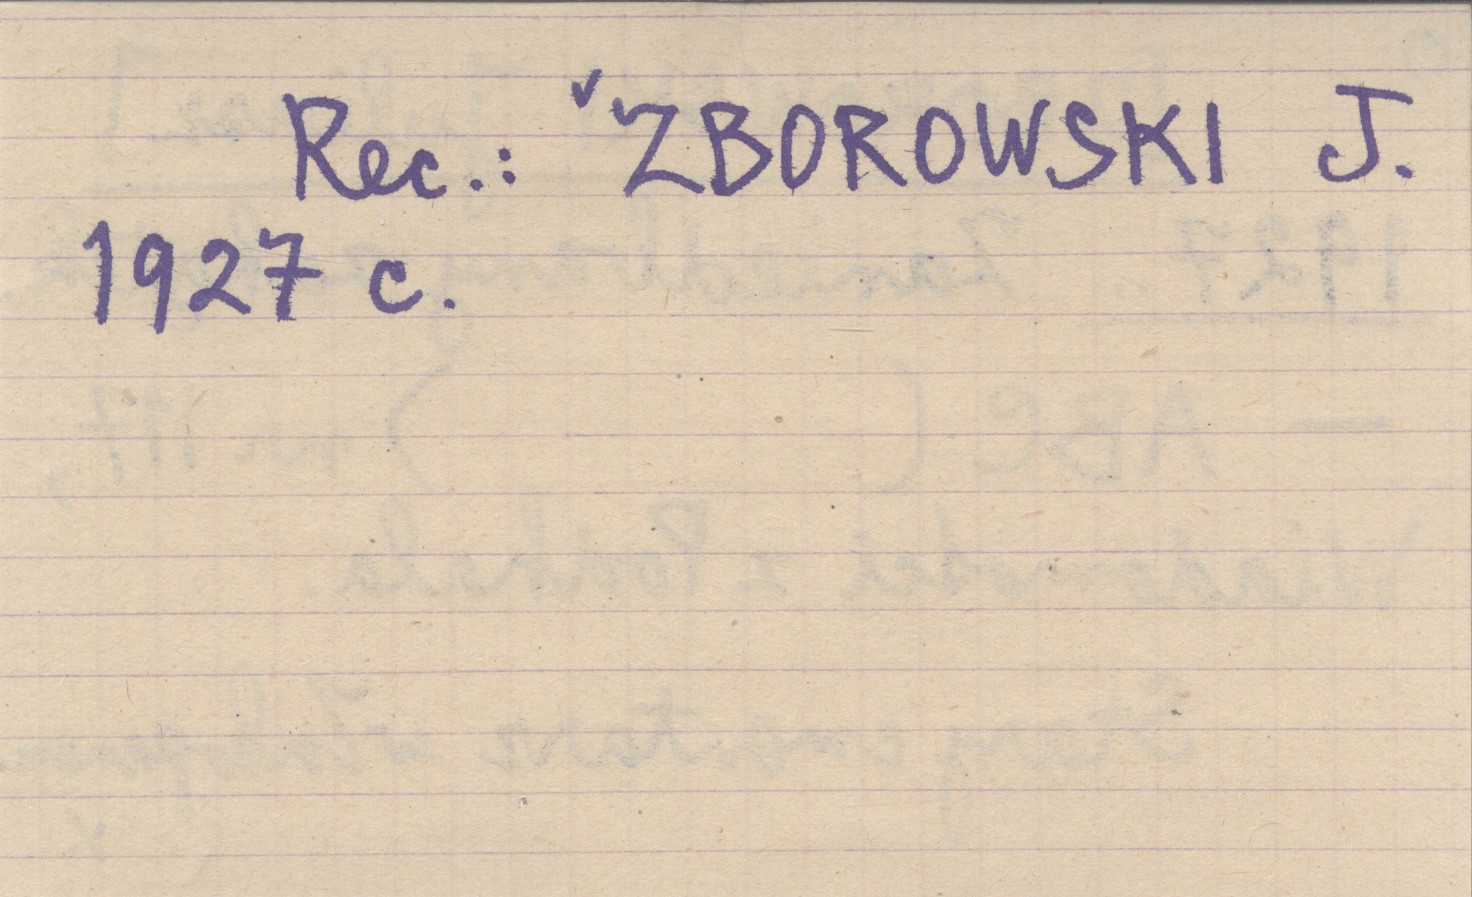 Rec.: ✓ZBOROWSKI J.
1927 c.